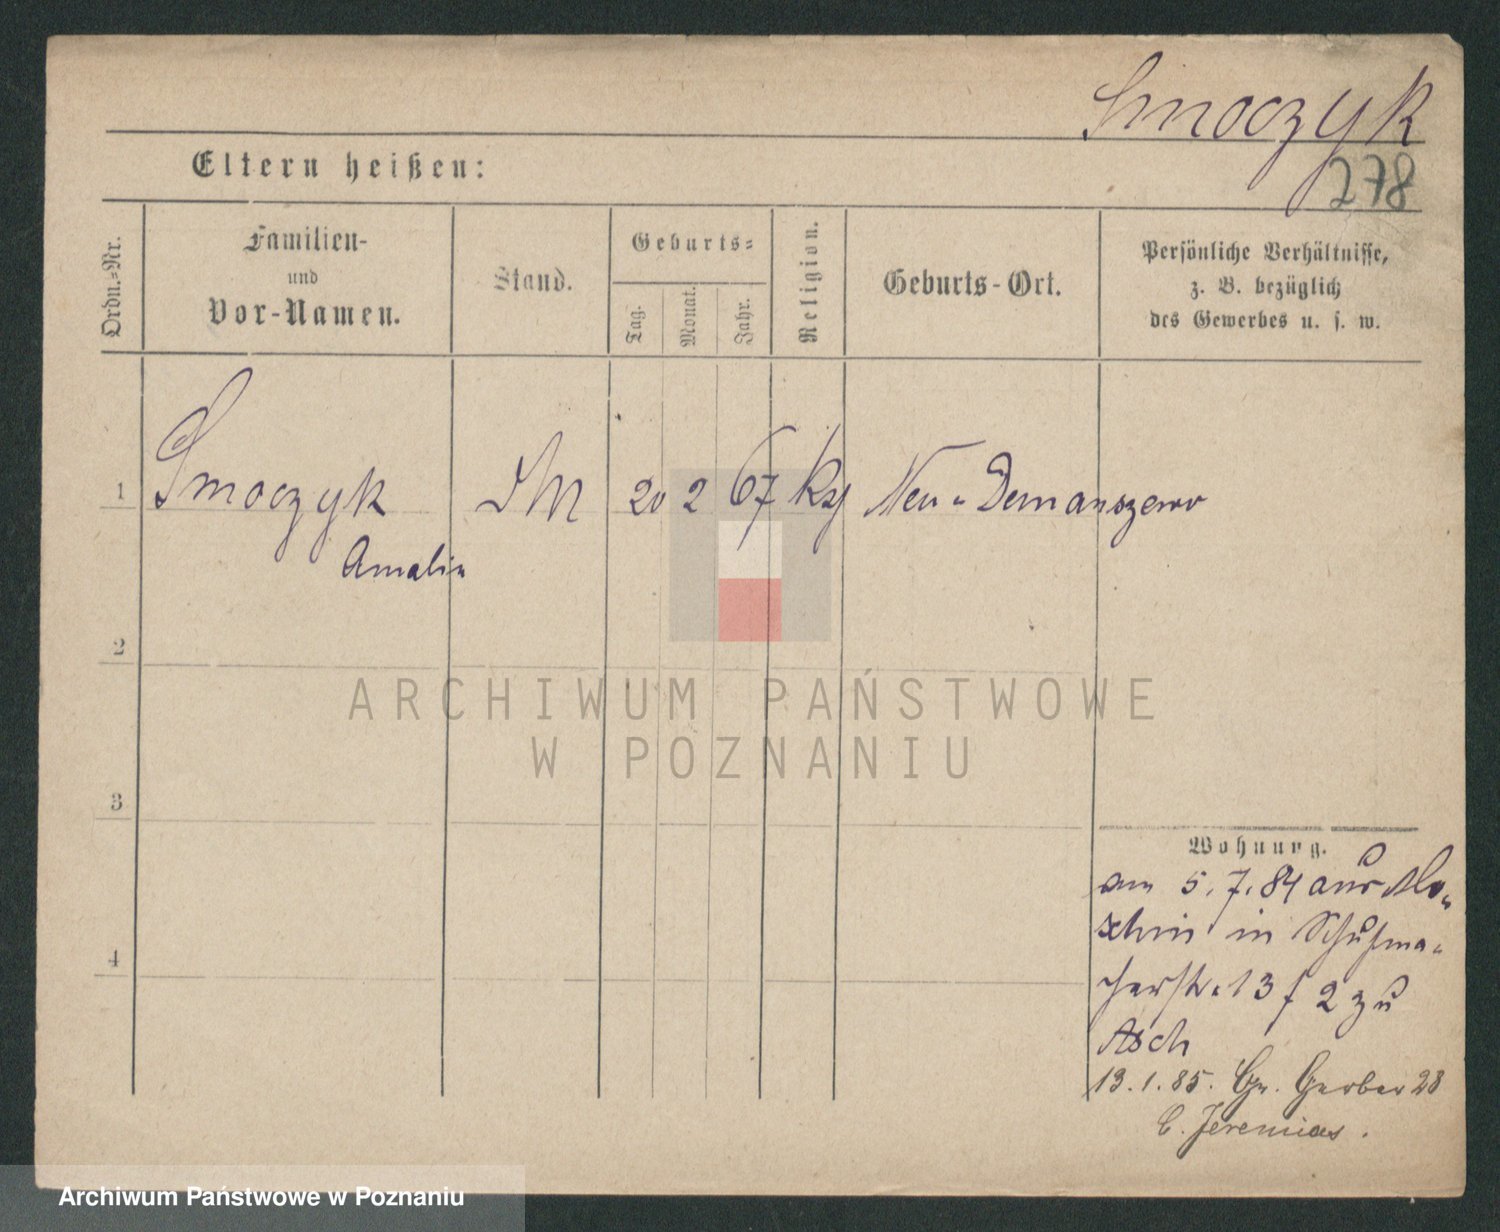 Smoczyk
278
Eltern heißen:
Ordn.-Nr.
Familien-
und
Vor-Namen.
Stand.
Geburts-
Tag.
Monat.
Jahr.
Religion.
Geburts-Ort.
Persönliche Verhältnisse,
z. B. bezüglich
des Gewerbes u. s. w.
1
Smoczyk
Amalie
DM 20 2 67 Neu-Demanszewo
2
ARCHIWUM PAŃSTWOWE
W POZNANIU
3
Wohnung.
am 5.7.84 aus Mo-
schin in Schuhma-
cherstr. 13 f 2 zu
Asch
4
13.1.85. Gr. Gerber 23
b. Jeremias.
Archiwum Państwowe w Poznaniu